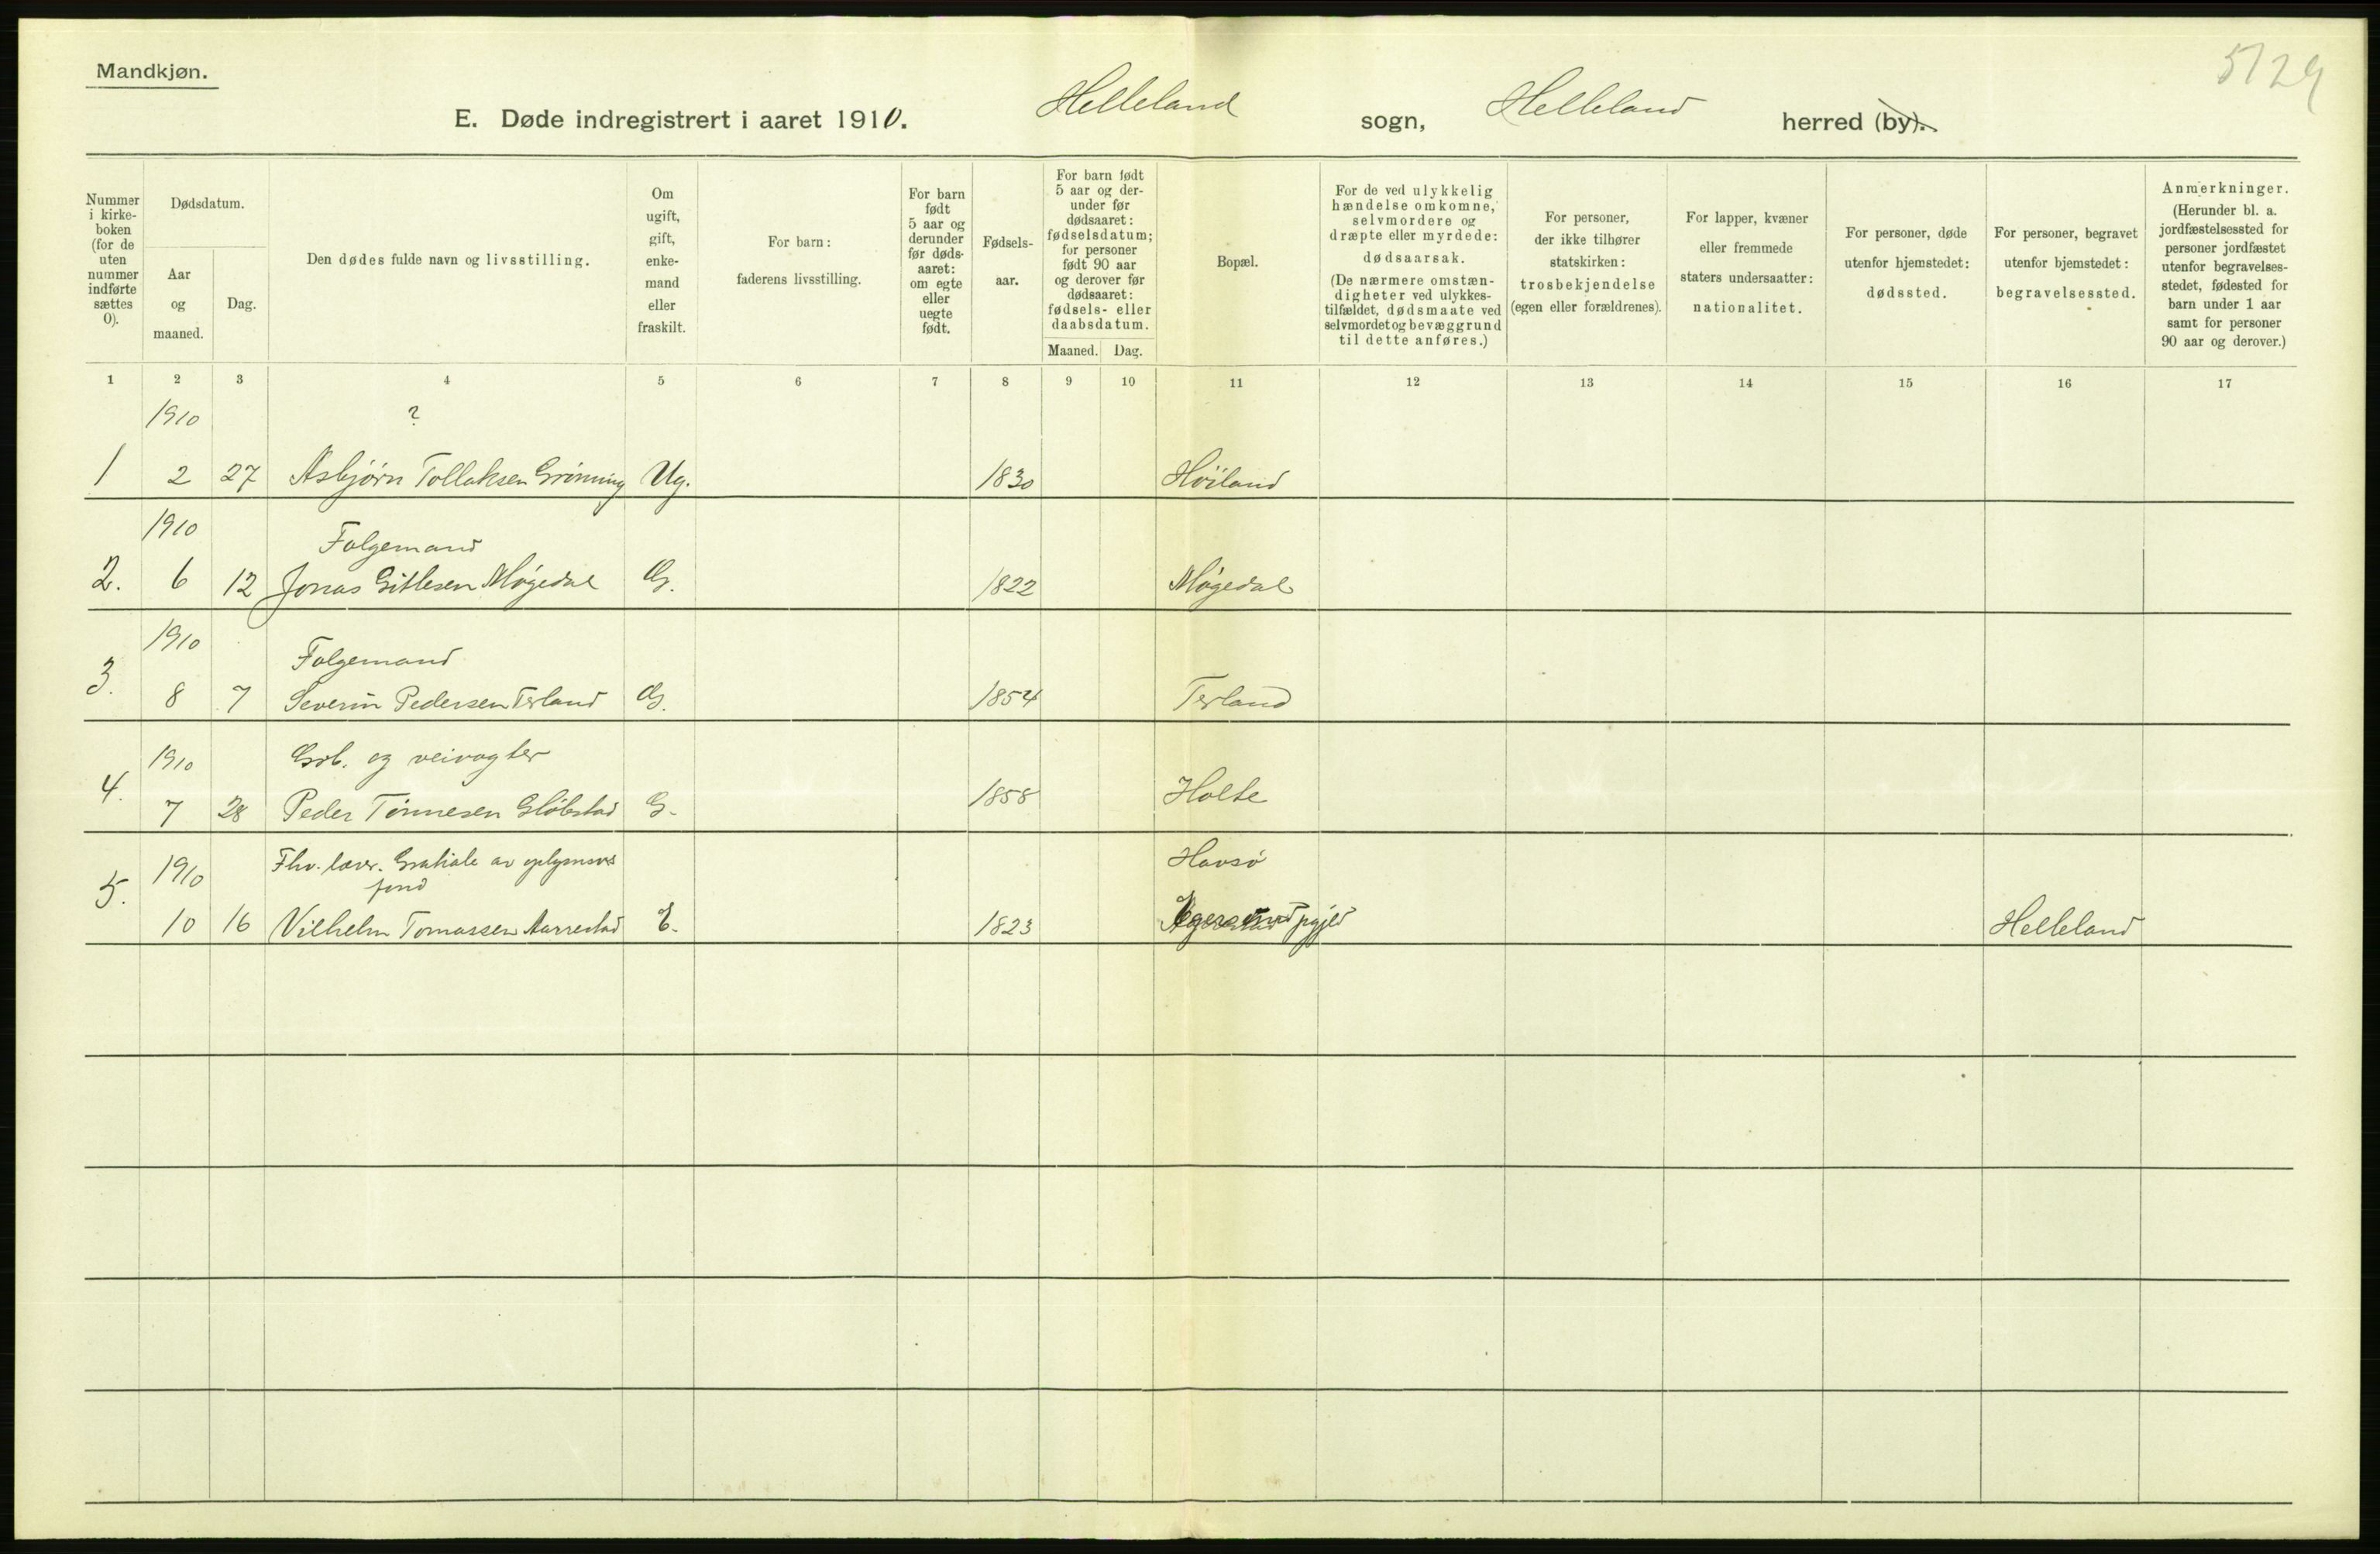 Mandkjøn.
5/29
E. Døde indregistrert i aaret 1910. Helleland sogn, Helleland herred (by).
Nummer i kirke- boken (for de uten nummer indførte sættes 0).
Dødsdatum.
Aar og maaned.
Dag.
Den dødes fulde navn og livsstilling.
Om ugift, gift, enke- mand eller fraskilt.
For barn: faderens livsstilling.
For barn født 5 aar og derunder før døds- aaret: om egte eller uegte født.
Fødsels- aar.
For barn født 5 aar og der- under før dødsaaret: fødselsdatum; for personer født 90 aar og derover før dødsaaret: fødsels- eller daabsdatum.
Maaned. Dag.
Bopæl.
For de ved ulykkelig hændelse omkomne, selvmordere og dræpte eller myrdede: dødsaarsak. (De nærmere omstæn- digheter ved ulykkes- tilfældet, dødsmaate ved selvmordet og bevæggrund til dette anføres.)
For personer, der ikke tilhører statskirken: trosbekjendelse (egen eller forældrenes).
For lapper, kvæner eller fremmede staters undersaatter: nationalitet.
For personer, døde utenfor hjemstedet: dødssted.
For personer, begravet utenfor hjemstedet: begravelsessted.
Anmerkninger. (Herunder bl. a. jordfæstelsessted for personer jordfæstet utenfor begravelses- stedet, fødested for barn under 1 aar samt for personer 90 aar og derover.)
1 2 3 4 5 6 7 8 9 10 11 12 13 14 15 16 17
1910 ?
1 2 27 Asbjørn Tollaksen Grønning Ug. 1830 Høiland
1910 Folgemand
2. 6 12 Jonas Gitlesen Møgedal G. 1822 Møgedal
1910 Folgemand
3. 8 7 Severin Pedersen Terland G. 1854 Terland
1910 Grb. og veivogter
4. 7 28 Peder Tønnesen Gløbstad G. 1858 Holte
1910 Fhv. lærer. Gratiale av oplysnings Havsø
fond
5. 10 16 Vilhelm Tomassen Aarrestad E. 1823 pgjld Helleland